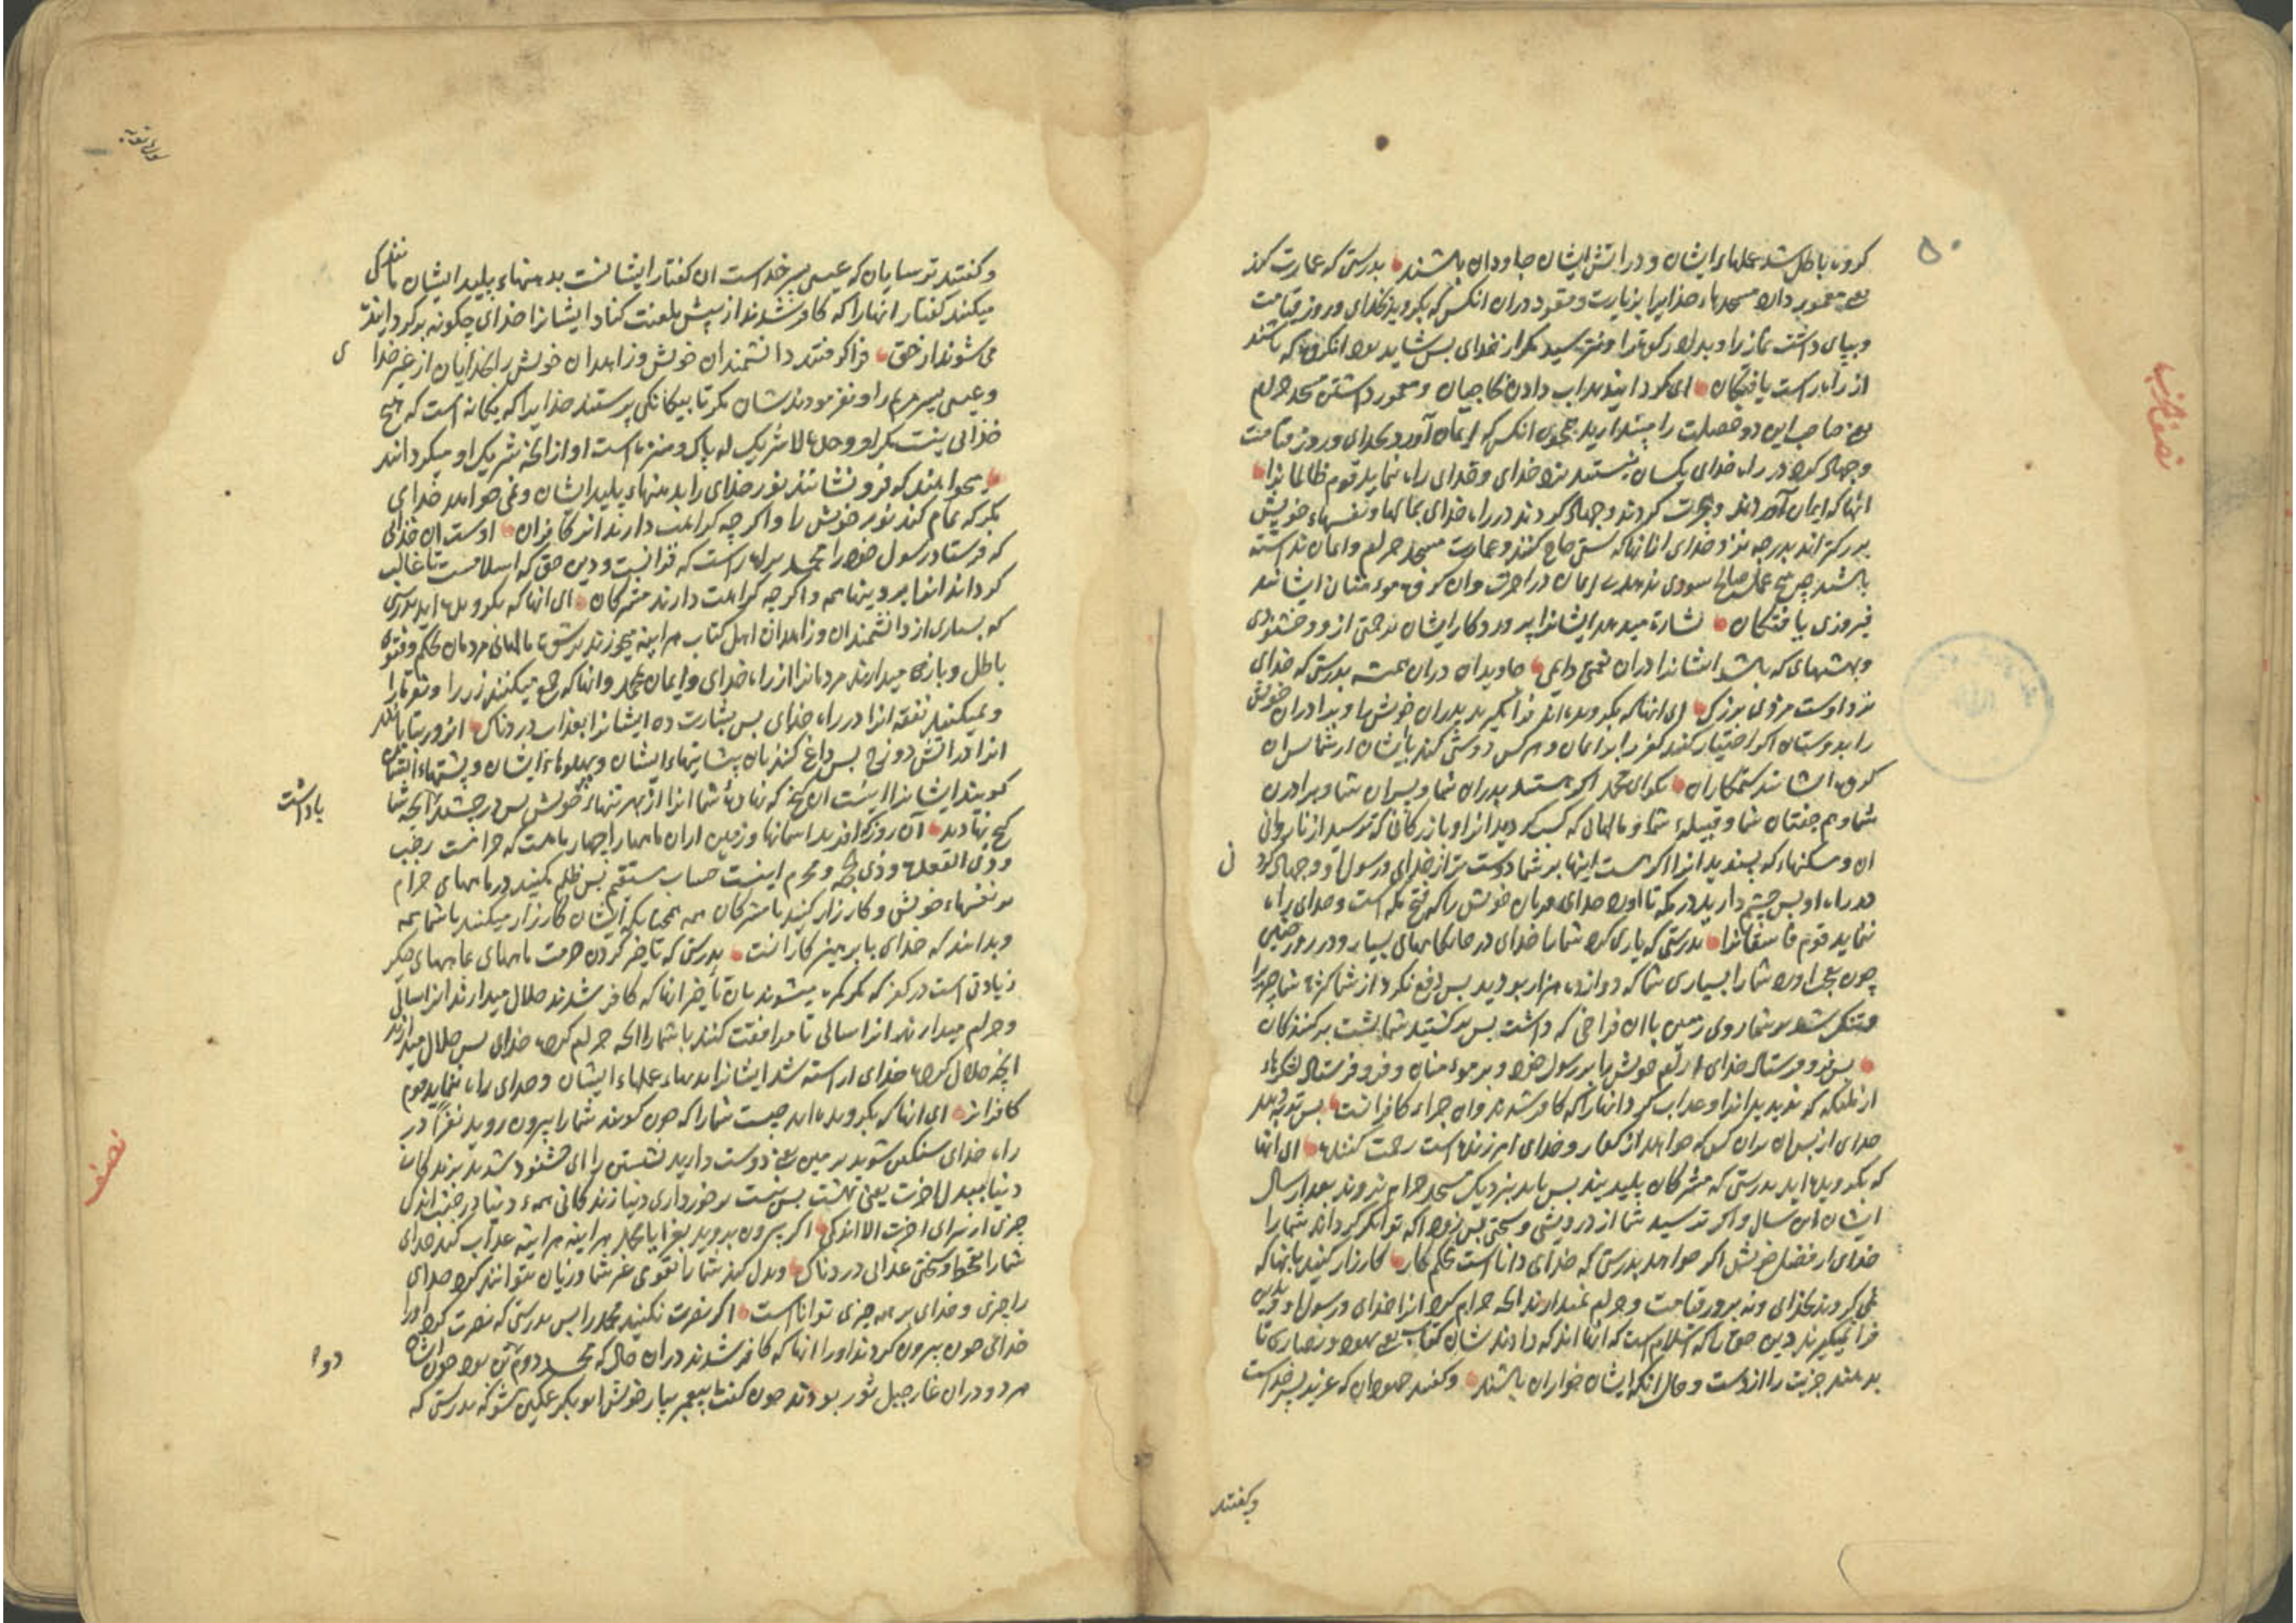 ۵۰
کروه باطل شد عملهاء ایشان و در آتش ایشان جاودان باشند بدرستی که عمارت کند
یعنی معمور دارد مسجدهاء خدایرا بزیارت و قعود در ان انکس که بکروید بخدای و روز قیامت
و بپای داشت نماز را و بداد زکوة را و نترسید مکر از خدای بس شاید انکروه که باشند
از راه راست یافتکان ای کردانیدید اب دادن حاجیان و معمور داشتن مسجد حرام
یعنی صاحب این دو خصلت را میندارید همچون انکس که ایمان آورد بخدای و روز قیامت
و جهاد کرد در راه خدای یکسان نیستند نزد خدای و خدای راه ننماید قوم ظالمانرا
آنها که ایمان آوردند و هجرت کردند و جهاد کردند در راه خدای بمالها و نفسهاء خویش
بزرکتراند بدرجه نزد خدای از انها که سقی حاج کنند و عمارت مسجد حرام و ایمان نداشته
باشند چه هیچ عمل صالح سودی ندهد بی ایمان در اخرت و ان کروه مومنان ایشانند
فیروزی یافتکان بشارت میدهد ایشانرا پروردکار ایشان برحمتی از و و خشنودی
و بهشتهای که باشد ایشانرا در ان نعمتی دایم جاویدان در ان همیشه بدرستی که خدای
نزد اوست مزدی بزرک ای انها که بکرویده‌اند فرا مکیرید پدران خویش را و برادران خویش
را بدوستان اکر اختیار کنند کفر را بر ایمان و هر کس دوستی کند با ایشان از شما بس ان
کروه ایشانند ستمکاران بکو ای محمد اکر هستند پدران شما و پسران شما و برادرن
شما و هم جفتان شما و قبیله شما و مالهائی که کسب کردید انرا و بازرکانی که ترسید از ناروائی
ان و مسکنهاء که پسندید انرا اکر هست اینها بر شما دوست‌تر از خدای و رسول او و جهاد کردن
در راه او بس چشم دارید در مکه تا اورد خدای فرمان خویش را که فتح مکه است و خدای راه
ننماید قوم فاسقانرا بدرستی که یاری کرد شما را خدای در جایکاههای بسیار و در روز حنین
چون بعجب اورد شما را بسیاری شما که دوازده هزار بودید بس دفع نکرد از شما کثرة شما چیزیرا
و تنک شد بر شما روی زمین با ان فراخی که داشت بس برکشتید شما پشت برکنندکان
بس فرو فرستاد خدای ارام خویش را بر رسول خود و بر مومنان و فرو فرستاد لشکرهاء
از ملائکه که ندیدید انرا و عذاب کرد انها را که کافر شدند و ان جزاء کافرانست بس توبه دهد
خدای از بس ان بران کس که خواهد از کفار و خدای امرزنده است رحمت کننده ای انها
که بکرویده‌اید بدرستی که مشرکان پلیدیند بس باید بنزدیک مسجد حرام نروند بعد از سال
ایشان این سال و اکر ترسید شما از درویشی و سختی بس زود که توانکر کرداند شما را
خدای از فضل خویش اکر خواهد بدرستی که خدای دانا است محکم کار کارزار کنید با انها که
نمی‌کروند بخدای و نه بروز قیامت و حرام نمیدارند انچه حرام کرد انرا خدای و رسول او و دین
فرا نمیکیرند دین حق را که اسلام است که از انها اند که دادند شان کتاب یعنی یهود و نصاری تا
بدهند جزیت را از دست و حال انکه ایشان خواران باشند و کفتند جهودان که عزیر پسر خداست
وکفتند
نصف حزب
سورة توبه
و کفتند ترسایان که عیسی پسر خداست ان کفتار ایشانست بدهنهاء پلید ایشان مانندکی
میکنند کفتار انها را که کافر شدند از پیش بلعنت کناد ایشانرا خدای چکونه برکردانیده
می‌شوند از حق فرا کرفتند دانشمندان خویش و زاهدان خویش را بخدایان از غیر خدا
و عیسی پسر مریم را و نفرمودندشان مکر تا بیکانکی پرستند خدایرا که یکانه است که هیچ
خدائی نیست مکر او وحده لا شریک له پاک و منزه است او از انچه شریک او میکردانند
میخواهند که فرو نشانند نور خدای را بدهنهاء پلید ایشان و نمی خواهد خدای
مکر که تمام کند نور خویش را و اکرچه کراهت دارند انرا کافران اوست ان خدائی
که فرستاد رسول خود را محمد براه راست که قرانست و دین حق که اسلامست تا غالب
کرداند انرا بر دینها همه و اکرچه کراهت دارند مشرکان ای انها که بکرویده‌اید بدرستی
که بسیاری از دانشمندان و زاهدان اهل کتاب هراینه میخورند برشوت مالهای مردمان بحکم و فتوی
باطل و باز می‌دارند مردمانرا از راه خدای و ایمان محمد و انها که جمع میکنند زر را و نقره را
و نمیکنند نفقه انرا در راه خدای بس بشارت ده ایشانرا بعذاب دردناک انروز بتابانند
انرا در اتش دوزخ بس داغ کنند بان پیشانیهاء ایشان و پهلوهاء ایشان و پشتهاء ایشان
کویند ایشانرا اینست ان کنج که نهادید شما انرا از بهر تنهاء خویش بس درچشید انچه شما
کنج نهادید آن روز که افرید اسمانها و زمین از ان ماهها را چهار ماهست که حرامست رجب
و ذی القعده و ذی حجه و محرم اینست حساب مستقیم بس ظلم مکنید در ماههای حرام
بر نفسهاء خویش و کارزار کنید با مشرکان همه همچنانکه ایشان کارزار میکنند با شما همه
و بدانید که خدای با پرهیزکارانست بدرستی که تاخیر کردن حرمت ماههای بماههای دیکر
زیادتی است در کفر که کمره میشوند بان تاخیر انها که کافر شدند حلال میدارند انرا سالی
و حرام میدارند انرا سالی تا موافقت کنند با شمار انچه حرام کرده خدای بس حلال میدارند
انچه حرام کرده خدای اراسته شد ایشانرا بدیهاء عملهاء ایشان و خدای راه ننماید قوم
کافرانرا ای انها که بکرویده‌اید چیست شما را که چون کویند شما را بیرون روید بغزا در
راه خدای سنکین شوید بر زمین یعنی دوست دارید نشستن را ای خشنود شدید بزندکانی
دنیا ببدل اخرت یعنی بهشت بس نیست برخورداری دنیا زندکانی همه دنیا در جنب اندک
چیزی از برای اخرت الا اندکی اکر بیرون نروید بغزا با محمد هراینه هراینه عذاب کند خدای
شما را بقحط و سختی عذابی دردناک و بدل کند شما را بقومی غیر شما و زیان نتوانند کرد خدای
را چیزی و خدای بر همه چیزی توانا است اکر نصرت نکنید محمد را بس بدرستی که نصرت کرد او را
خدای چون بیرون کردند او را انها که کافر شدند در ان حال که محمد دوم تن بود چون ایشان
هر دو در ان غار جبل ثور بودند چون کفت پیغمبر بیار خویش ابوبکر غمکین مشو که بدرستی که
ی
یاداشت
دوم
نصف